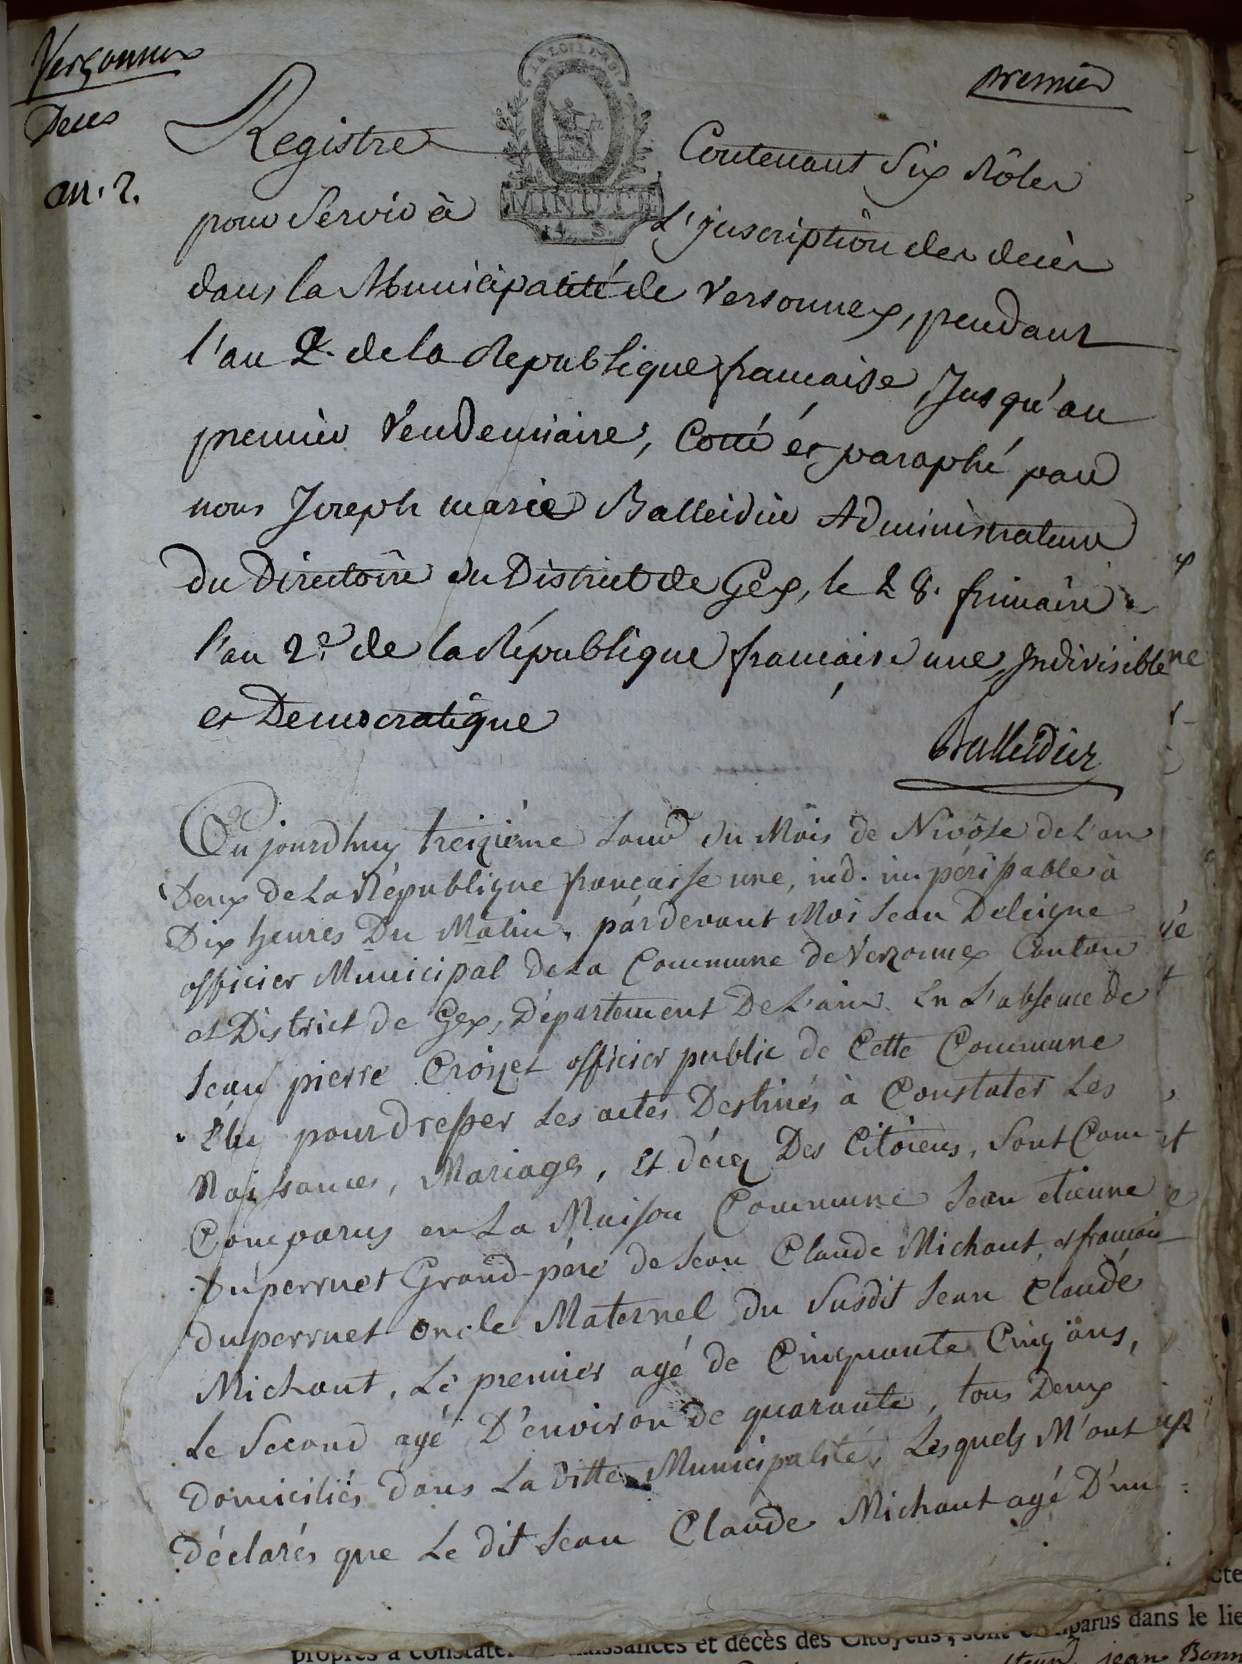 Verzonnex
Deces
an. 2.
premier
LA LOI LE ROI
MINUTE
4. S.
Registre Contenant Six rôles
pour Servir à L'jnscription des decès
dans la Municipalité de Versonnex, pendant
l'an 2. de la Republique francaise, Jusqu'au
premier Vendemiaire, Cotté et paraphé par
nous Joseph marie Balleidier Administrateur
du Directoire du District de Gex, le 28. frimaire
l'an 2e. de la République francaise une, Indivisible
et Democratique
Balleidier
Aujourdhuy treizième Jour du Mois de Nivôse de L'an
Deux de La République francaise une, ind. impérissable à
Dix heures Du Matin, pardevant Moi Jean Deleigne
officier Municipal de La Commune de Verzonnex Canton
et District de Gex, Département De L'ain. En L'absence de
Jean pierre Croizet officier public de Cette Commune
Elu pour dresser Les actes Destinés à Constater Les
Naissances, Mariages, Et décez Des Citoiens, Sont Com-
Comparus en La Maison Commune Jean etienne
Duperruet Grand-père de Jean Claude Michaut, et francois
duperruet oncle Maternel du Susdit Jean Claude
Michaut, Le premier agé de Cinquante Cinq ans,
Le Second agé D'environ de quarante, tous Deux
domiciliés dans La ditte Municipalité, Lesquels M'ont
déclarés que Le dit Jean Claude Michaut agé D'un
propres à constater naissances et décès des Citoyens, sont comparus dans le lie
jean Bonn